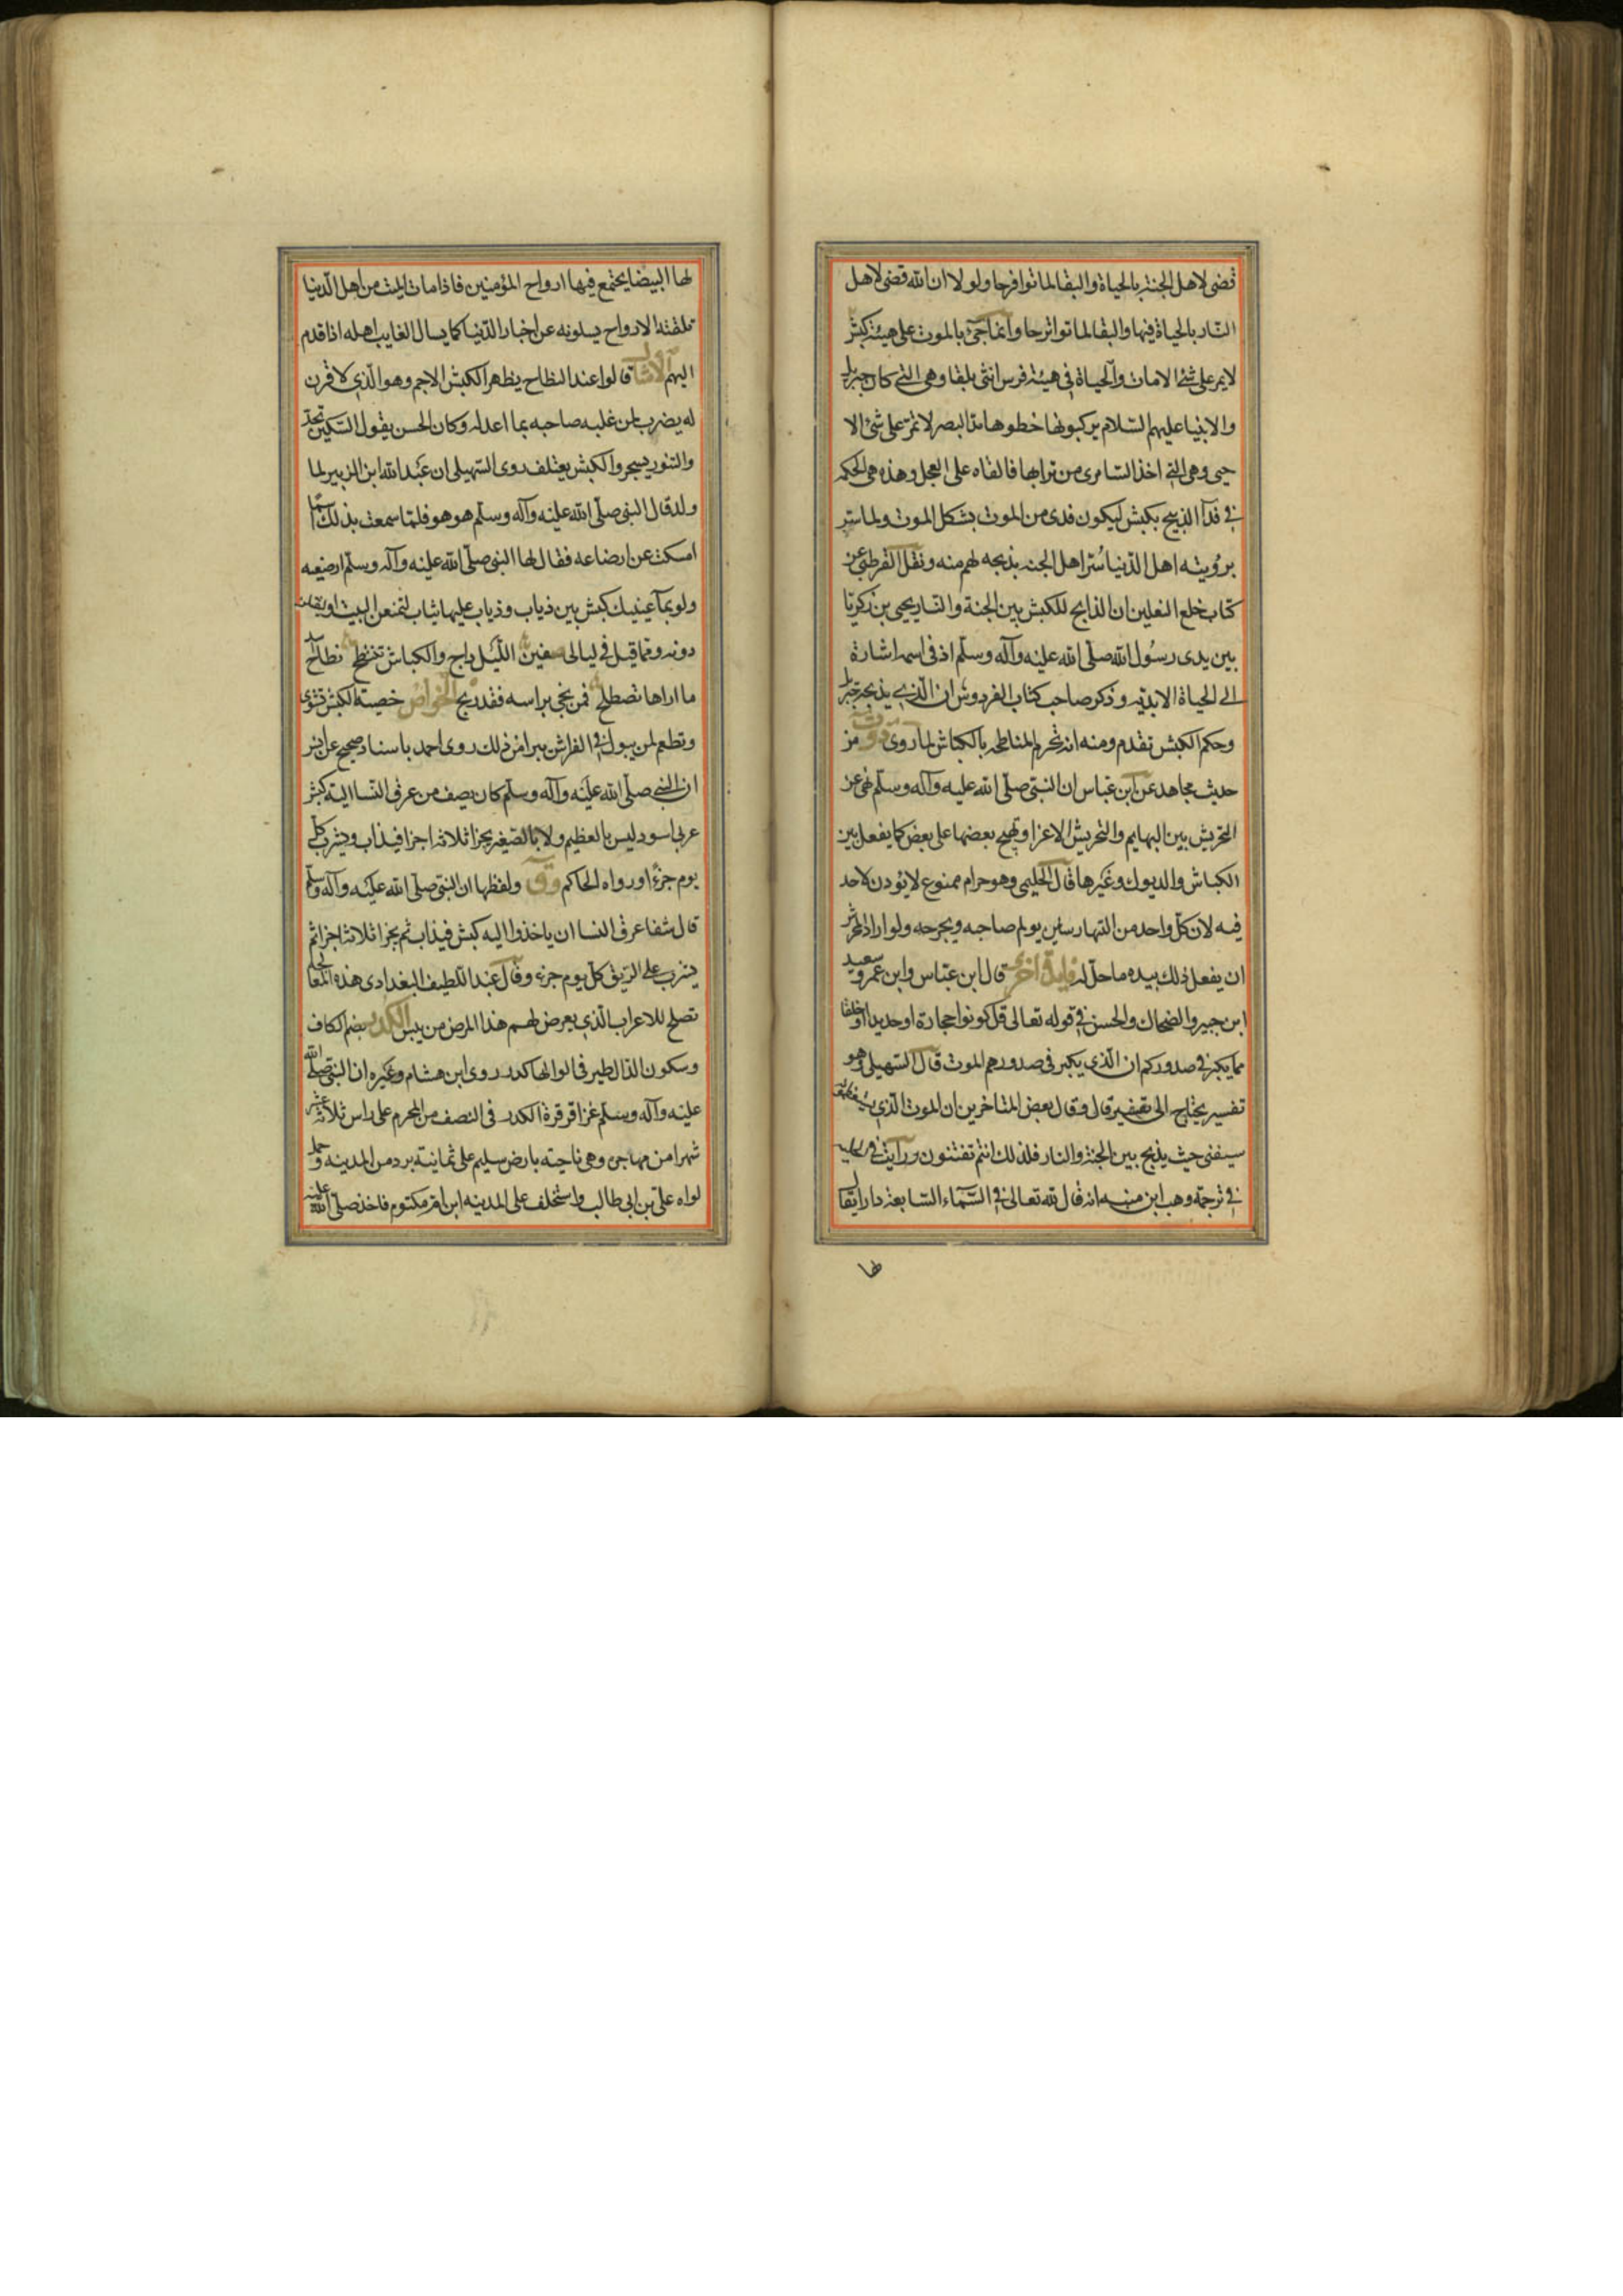 قضى لاهل الجنة بالحياة والبقا لماتوا فرحا ولولا ان الله قضى لاهل
النار بالحياة فيها والبقا لماتوا ترحا وانما جئ بالموت على هيئة كبش
لا يمر على شئ الا مات والحياة في هيئة فرس انثى بلقا وهى التى كان جبريل
والانبيا عليهم السلام يركبونها خطوها مد البصر لا تمر على شئ الا
حيى وهى التى اخذ السامرى من ترابها فالقاه على العجل وهذه هى الحكمة
في فدآ الذبيح بكبش ليكون فدى من الموت بشكل الموت ولما سر
برؤيته اهل الدنيا سُر اهل الجنه بذبحه لهم منه ونقل القرطبى عن
كتاب خلع النعلين ان الذابح للكبش بين الجنة والنار يحيى بن زكريا
بين يدى رسول الله صلى الله عليه وآله وسلم اذ فى اسمه اشارة
الى الحياة الابدية وذكر صاحب كتاب الفردوس ان الذى يذبحه جبريل
وحكم الكبش تقدم ومنه انه تحرم المناطحه بالكباش لما روى د ت من
حديث مجاهد عن ابن عباس ان النبى صلى الله عليه وآله وسلم نهى عن
التحريش بين البهايم والتحريش الاغرا وتهيج بعضها على بعض كما يفعل بين
الكباش والديوك وغيرها قال الحليمى وهو حرام ممنوع لا يؤدن لاحد
فيه لان كل واحد من المتهارشين يولم صاحبه ويجرحه ولو اراد المحرش
ان يفعل ذلك بيده ما حل له فايدة اخرى قال ابن عباس وابن عمرو وسعيد
ابن جبير والضحاك والحسن في قوله تعالى قل كونوا حجارة او حديدا او خلقا
مما يكبر فى صدوركم ان الذى يكبر فى صدورهم الموت قال السهيلى وهو
تفسير يحتاج الى تفسير قال وقال بعض المتاخرين ان الموت الذى
سيفنى حيث يذبح بين الجنة والنار فلذلك انتم تفتنون ورآيت في الحليه
في ترجمة وهب ابن منبه انه قال لله تعالى في السمآء السابعة دار ايقال
لها
لها البيضا يجتمع فيها ارواح المؤمنين فاذا مات الميت من اهل الدنيا
تلقته الارواح يسلونه عن اخبار الدنيا كما يسال الغايب اهله اذا قدم
اليهم الامثال قالوا عند النطاح يظهر الكبش الاجم وهو الذى لا قرن
له يضرب لمن غلبه صاحبه بما اعد له وكان الحسن يقول السكين تحد
والتنور يسجر والكبش يعتلف روى السهيلى ان عبد الله ابن الزبير لما
ولد قال النبى صلى الله عليه وآله وسلم هو هو فلما سمعت بذلك اسما
امسكت عن ارضاعه فقال لها النبى صلى الله عليه وآله وسلم ارضيعه
ولو بمآ عينيك كبش بين ذياب وذياب عليها ثياب لتمنعن البيت او ليقتلن
دونه ومما قيل فى ليالى صفين الليل داج والكباش تنتطح نطاح اسد
ما اراها تصطلح فمن نجى براسه فقد ربح الخواص خصية الكبش تشوى
وتطعم لمن يبول في الفراش يبرا من ذلك روى احمد باسناد صحيح عن انس
ان النبى صلى الله عليه وآله وسلم كان يصف من عرق النسا الية كبش
عربى اسود ليس بالعظيم ولا بالصغير يجزا ثلاثة اجزا فيذاب ويشرب كل
يوم جزءا ورواه الحاكم و ق ولفظها ان النبى صلى الله عليه وآله وسلم
قال شفا عرق النسا ان ياخذوا اليه كبش فيذاب ثم يجزا ثلاثة اجزا ثم
يشرب على الريق كل يوم جزء وقال عبد اللطيف البغدادى هذه المعالجة
تصلح للاعراب الذى يعرض لهم هذا المرض من يبس الكدر بضم الكاف
وسكون الدال طير فى الوالها كدر روى ابن هشام وغيره ان النبى صلى الله
عليه وآله وسلم غزا قرقرة الكدر فى النصف من المحرم على راس ثلاثة عشر
شهرا من مهاجره وهى ناحية بارض سليم على ثمانية برد من المدينه وحمل
لواه على بن ابى طالب واستخلف على المدينه ابن ام مكتوم فاخذ صلى الله عليه